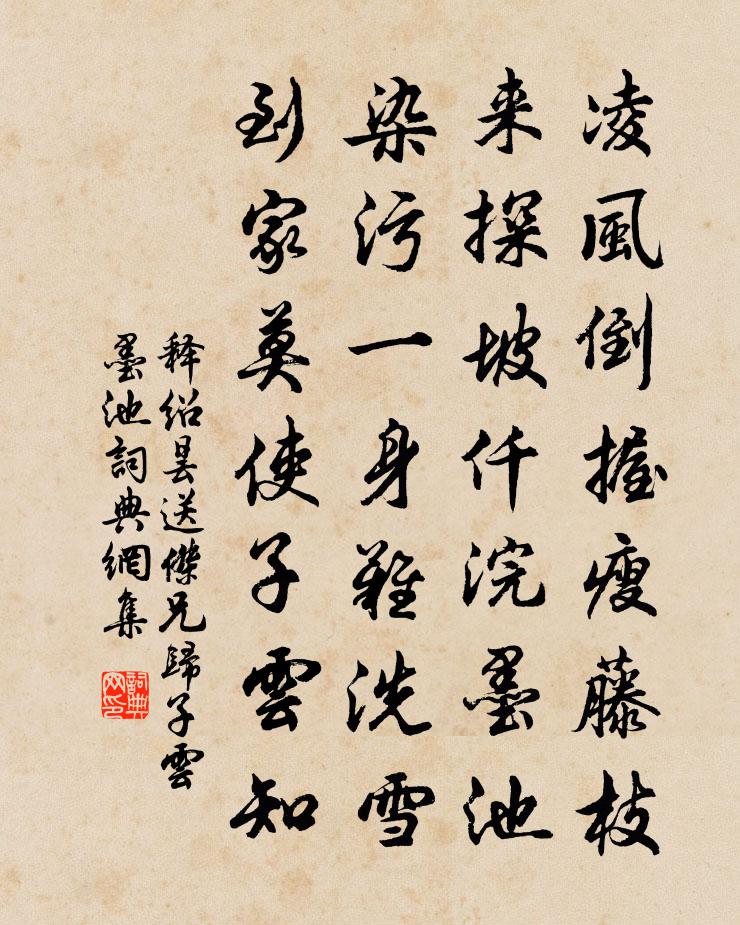 凌風倒握瘦藤枝
来探坡仟浣墨池
染污一身難洗雪
到家莫使子雲知
释绍昙送傑兄歸子雲
墨池詞典網集
詞典网印